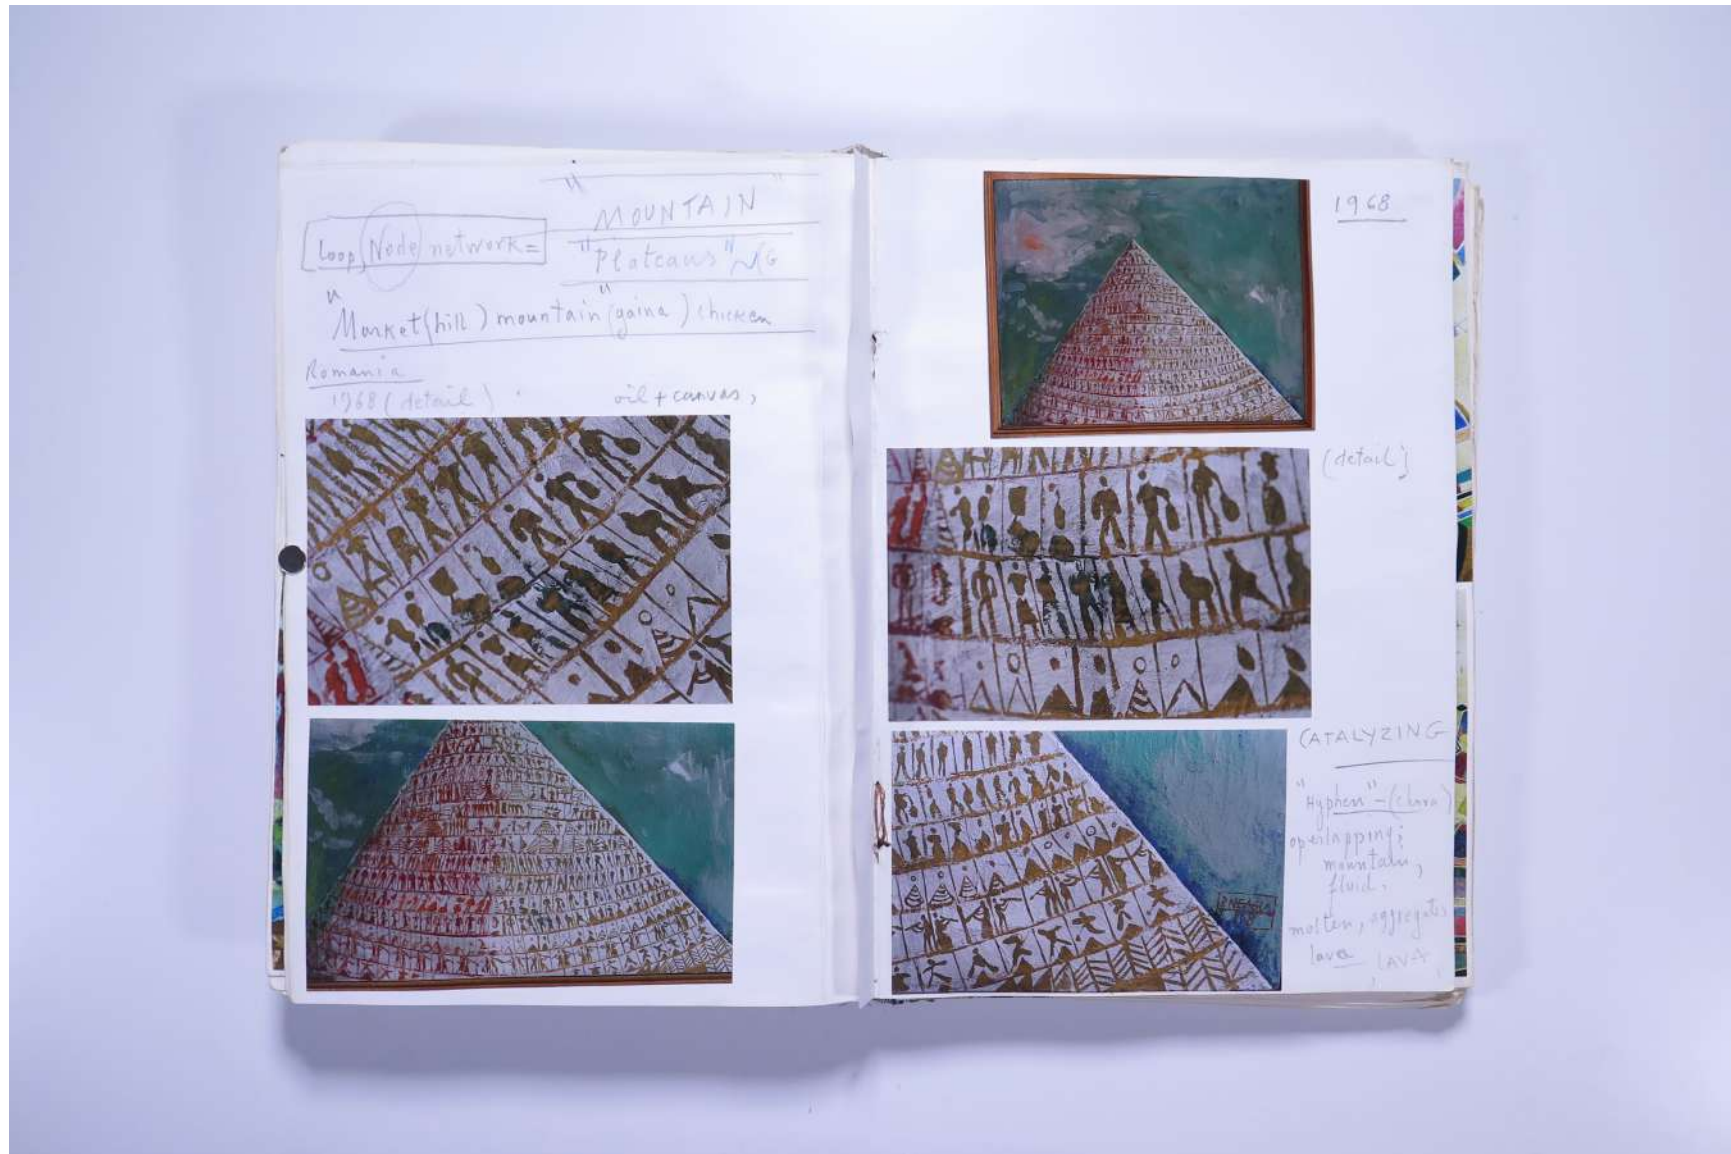 "MOUNTAIN"
[Loop, Node network=
"Plateaus"
"Market (hill) mountain "(gaina) chicken
Romania
1968 (detail)
oil + canvas,
1968
(detail)
CATALYZING
"Hyphen" -
overlapping;
mountain,
fluid.
molten, aggregates
lava LAVA,